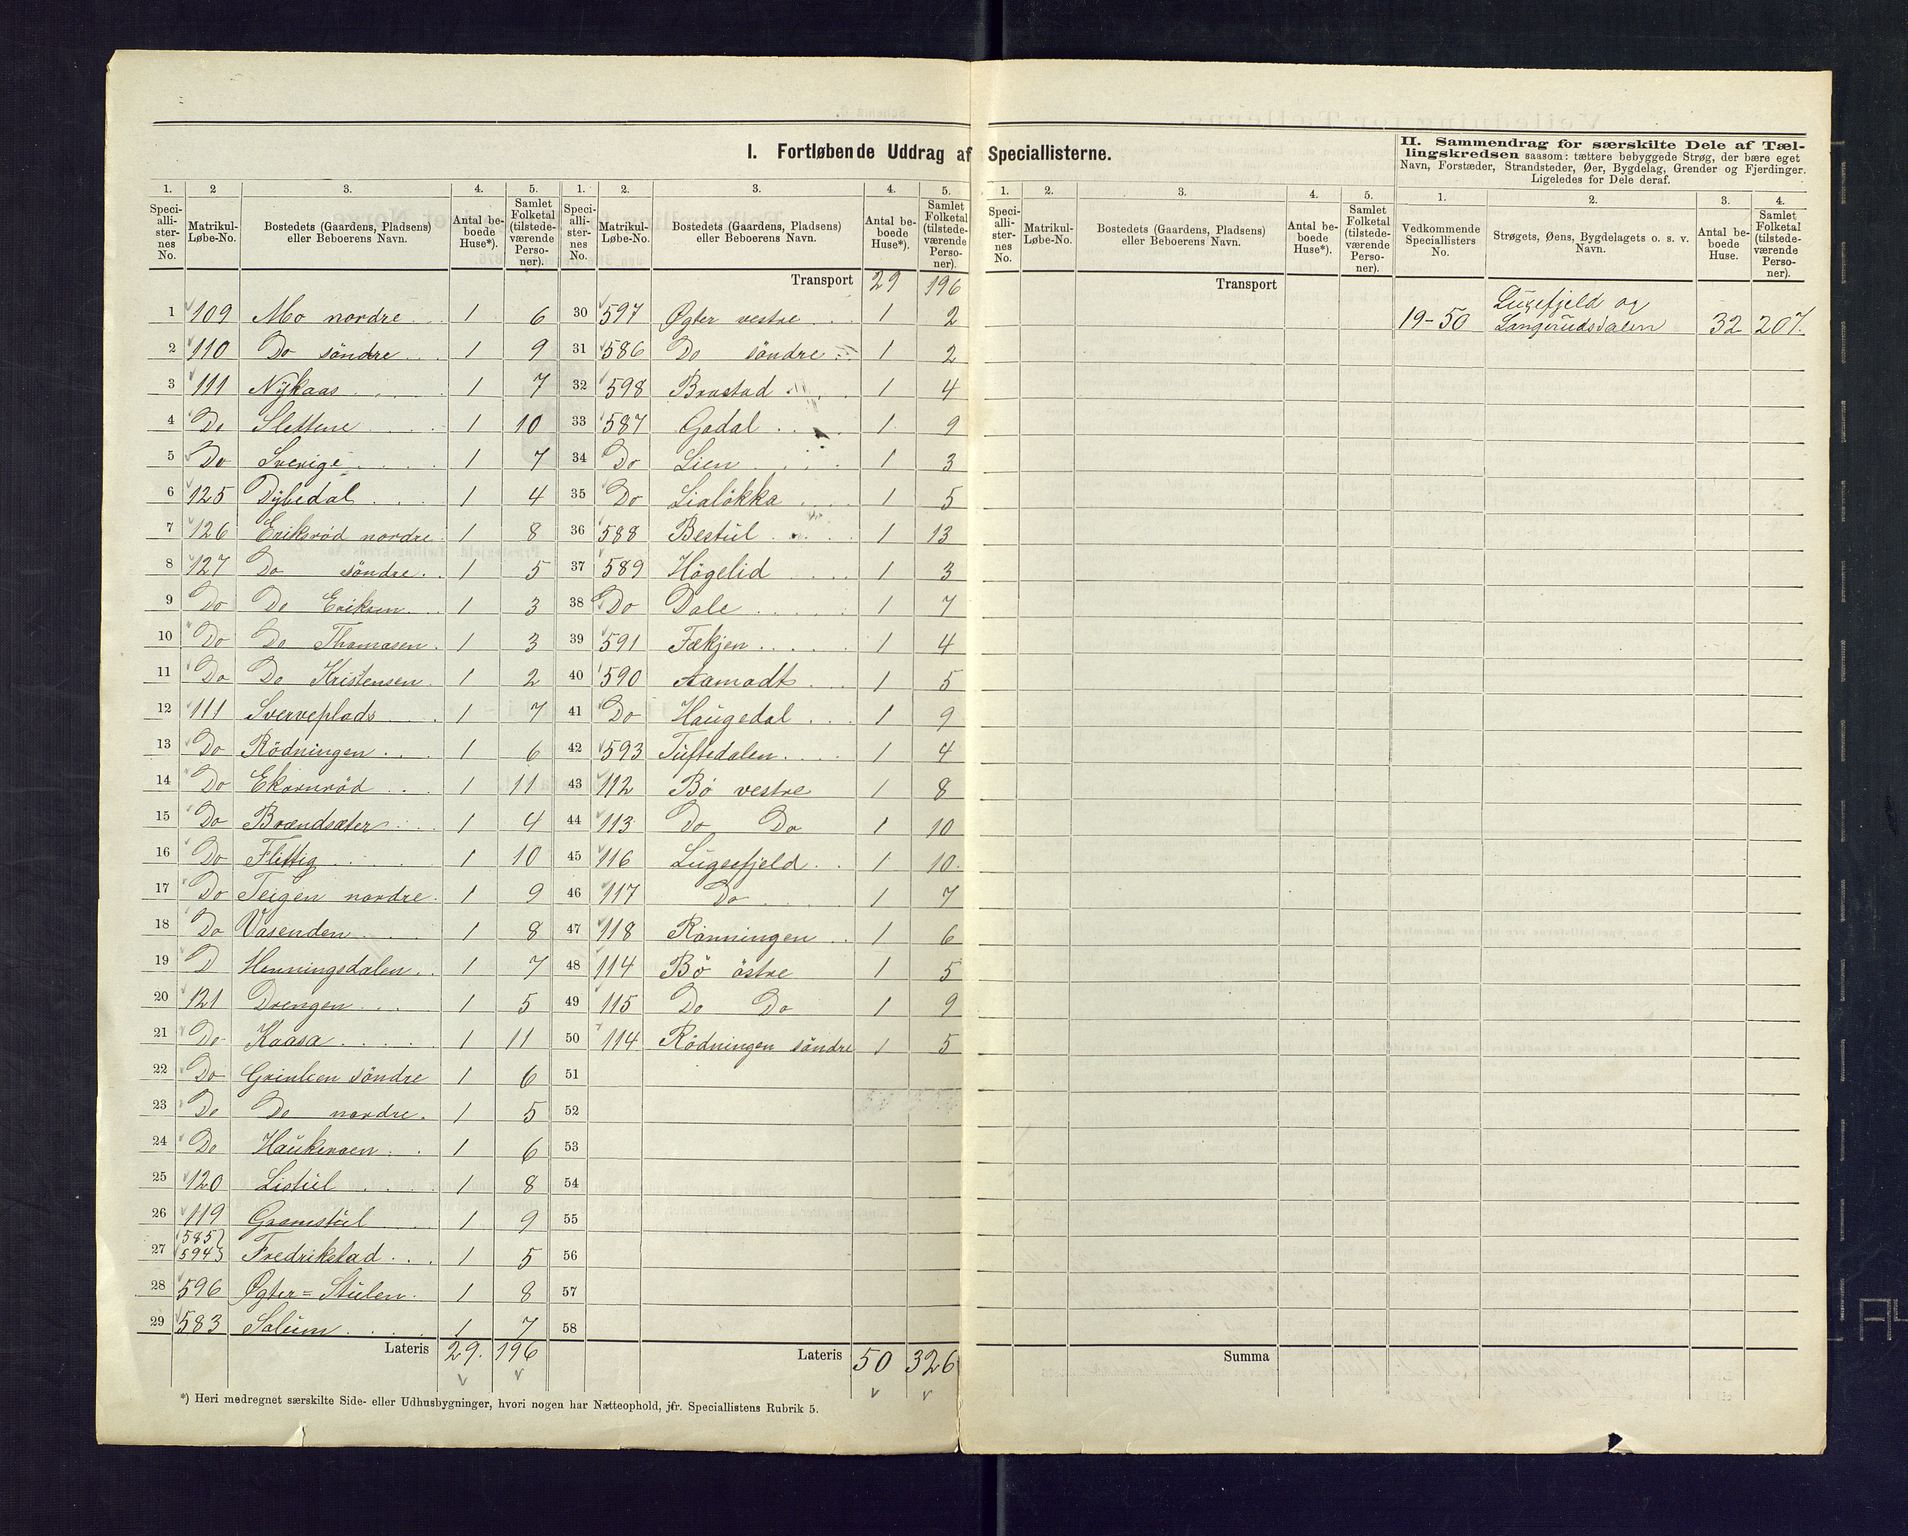 I. Fortløbende Uddrag af Speciallisterne.
II. Sammendrag for særskilte Dele af Tæl-
lingskredsen saasom: tættere bebyggede Strøg, der bære eget
Navn, Forstæder, Strandsteder, Øer, Bygdelag, Grender og Fjerdinger.
Ligeledes for Dele deraf.
1. 2 3. 4. 5.
Speciallisternes No. Matrikul-Løbe-No. Bostedets (Gaardens, Pladsens) eller Beboerens Navn. Antal beboede Huse*). Samlet Folketal (tilstedeværende Personer).
1 109 Mo nordre 1 6
2 110 Do söndre 1 9
3 111 Nykaas 1 7
4 Do Slettene 1 10
5 Do Sverige 1 7
6 125 Dybedal 1 4
7 126 Eriksröd nordre 1 8
8 127 Do söndre 1 5
9 Do Do Eriksen 1 3
10 Do Do Thomasen 1 3
11 Do Do Kristensen 1 2
12 111 Sverveplads 1 7
13 Do Rödningen 1 6
14 Do Ekornröd 1 11
15 Do Brændsæter 1 4
16 Do Flittig 1 10
17 Do Teigen nordre 1 9
18 Do Vasenden 1 8
19 D Henningsdalen 1 7
20 121 Drengen 1 5
21 Do Kaasa 1 11
22 Do söndre 1 6
23 Do Do nordre 1 5
24 Do 1 6
25 120 Listul 1 8
26 119 Gromstul 1 9
27 585 594 Fredrikstad 1 5
28 596 Øgter=Stulen 1 8
29 583 Solum 1 7
Lateris 29. 196
1. 2. 3. 4. 5.
Speciallisternes No. Matrikul-Løbe-No. Bostedets (Gaardens, Pladsens) eller Beboerens Navn. Antal beboede Huse*). Samlet Folketal (tilstedeværende Personer).
Transport 29 196
30 597 Øgter vestre 1 2
31 586 Do söndre 1 2
32 598 Brostad 1 4
33 587 Godal 1 9
34 Do Lien 1 3
35 Do Lialökka 1 5
36 588 Bestul 1 13
37 589 Högelid 1 3
38 Do Dale 1 7
39 591 Fækjen 1 4
40 590 Aamodt 1 5
41 Do Haugedal 1 9
42 593 Tuftedalen 1 4
43 112 Bö vestre 1 8
44 113 Do Do 1 10
45 116 Lugefjeld 1 10
46 117 Do 1 7
47 118 Rönningen 1 6
48 114 Bö östre 1 5
49 115 Do Do 1 9
50 114 Rödningen söndre 1 5
51
52
53
54
55
56
57
58
Lateris 50 326
*) Heri medregnet særskilte Side- eller Udhusbygninger, hvori nogen har Natteophold, jfr. Speciallistens Rubrik 5.
1. 2. 3. 4. 5.
Speciallisternes No. Matrikul-Løbe-No. Bostedets (Gaardens, Pladsens) eller Beboerens Navn. Antal beboede Huse*). Samlet Folketal (tilstedeværende Personer).
Transport
Summa
1. 2. 3. 4.
Vedkommende Speciallisters No. Strøgets, Øens, Bygdelagets o. s. v. Navn. Antal beboede Huse. Samlet Folketal (tilstedeværende Personer).
Lugefjeld og
19-50 Langerudsdalen 32 207.